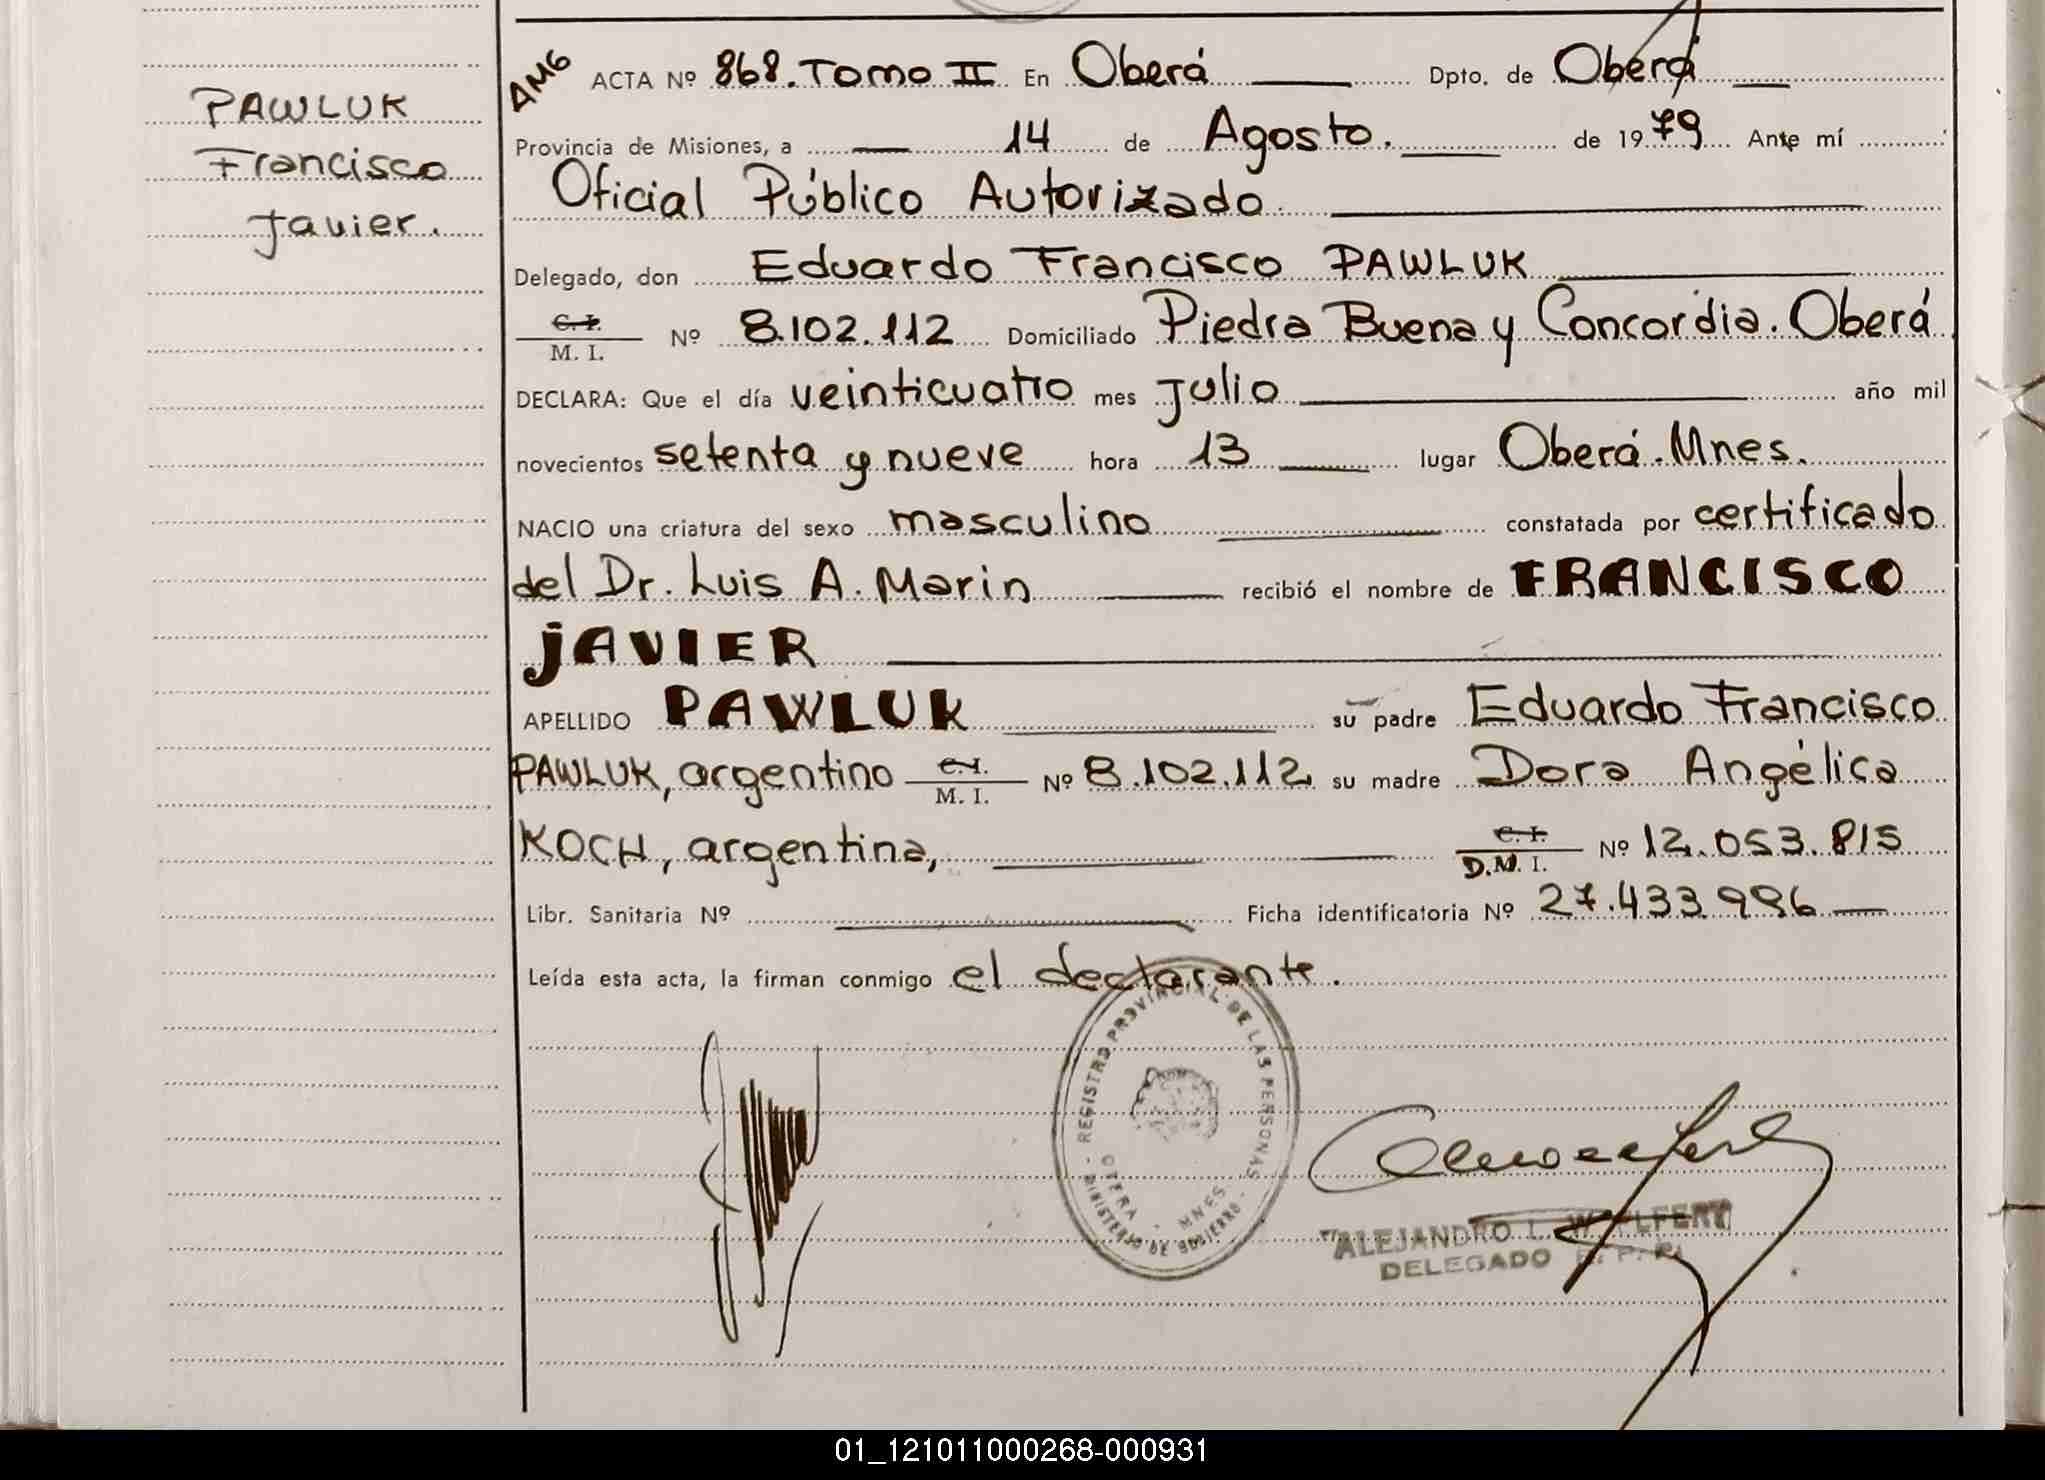 PAWLUK
Francisco
Javier.
AMG
ACTA Nº 868. Tomo II En Oberá Dpto. de Oberá
Provincia de Misiones, a 14 de Agosto. de 1979 Ante mí
Oficial Público Autorizado
Delegado, don Eduardo Francisco PAWLUK
C. I.
M. I. Nº 8.102.112 Domiciliado Piedra Buena y Concordia. Oberá
DECLARA: Que el día veinticuatro mes Julio año mil
novecientos setenta y nueve hora 13 lugar Oberá. Mnes.
NACIO una criatura del sexo masculino constatada por certificado
del Dr. Luis A. Marin recibió el nombre de FRANCISCO
JAVIER
APELLIDO PAWLUK su padre Eduardo Francisco
PAWLUK, argentino C. I. M. I. Nº 8.102.112 su madre Dora Angélica
KOCH, argentina, C. I. D.M. I. Nº 12.053.815
Libr. Sanitaria Nº Ficha identificatoria Nº 27.433.996
Leída esta acta, la firman conmigo el declarante.
REGISTRO PROVINCIAL DE LAS PERSONAS
MNES
MINISTERIO DE GOBIERNO
ALEJANDRO L.
DELEGADO
01_121011000268-000931